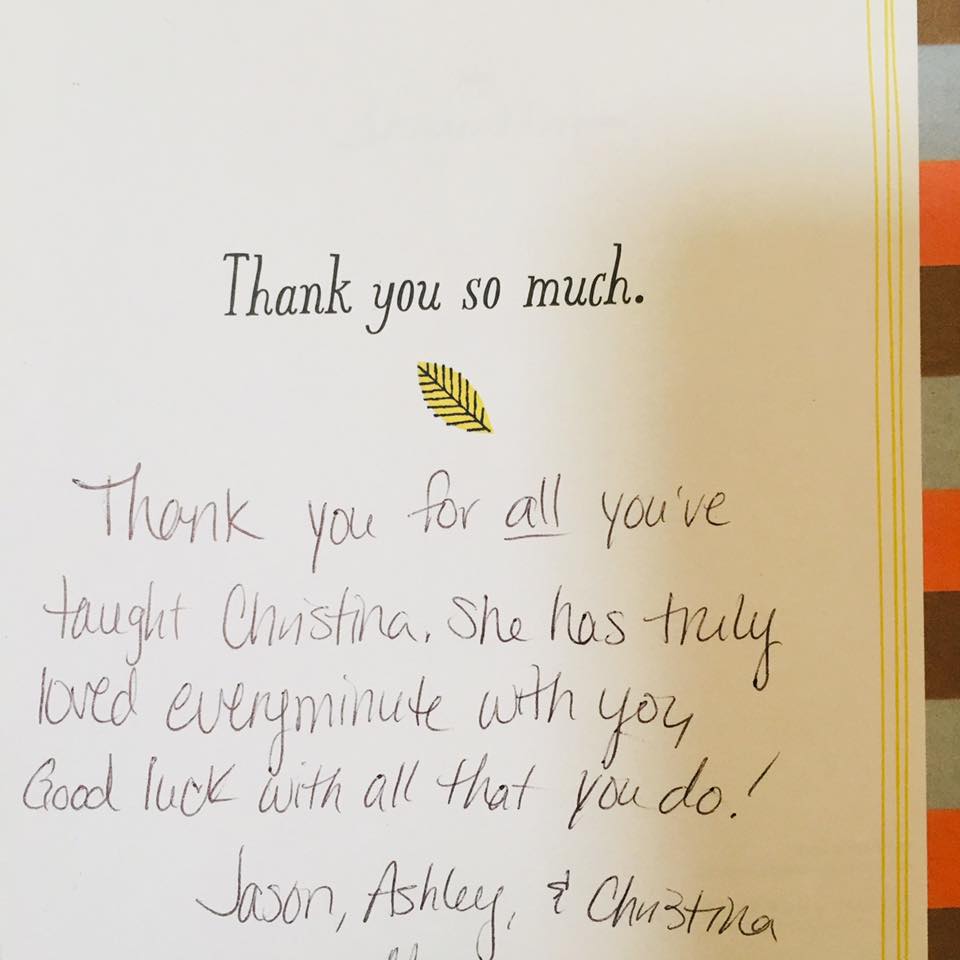 Thank you so much.
Thank you for all you've
taught Christina. She has truly
loved everyminute with you,
Good luck with all that you do!
Jason, Ashley, & Christina